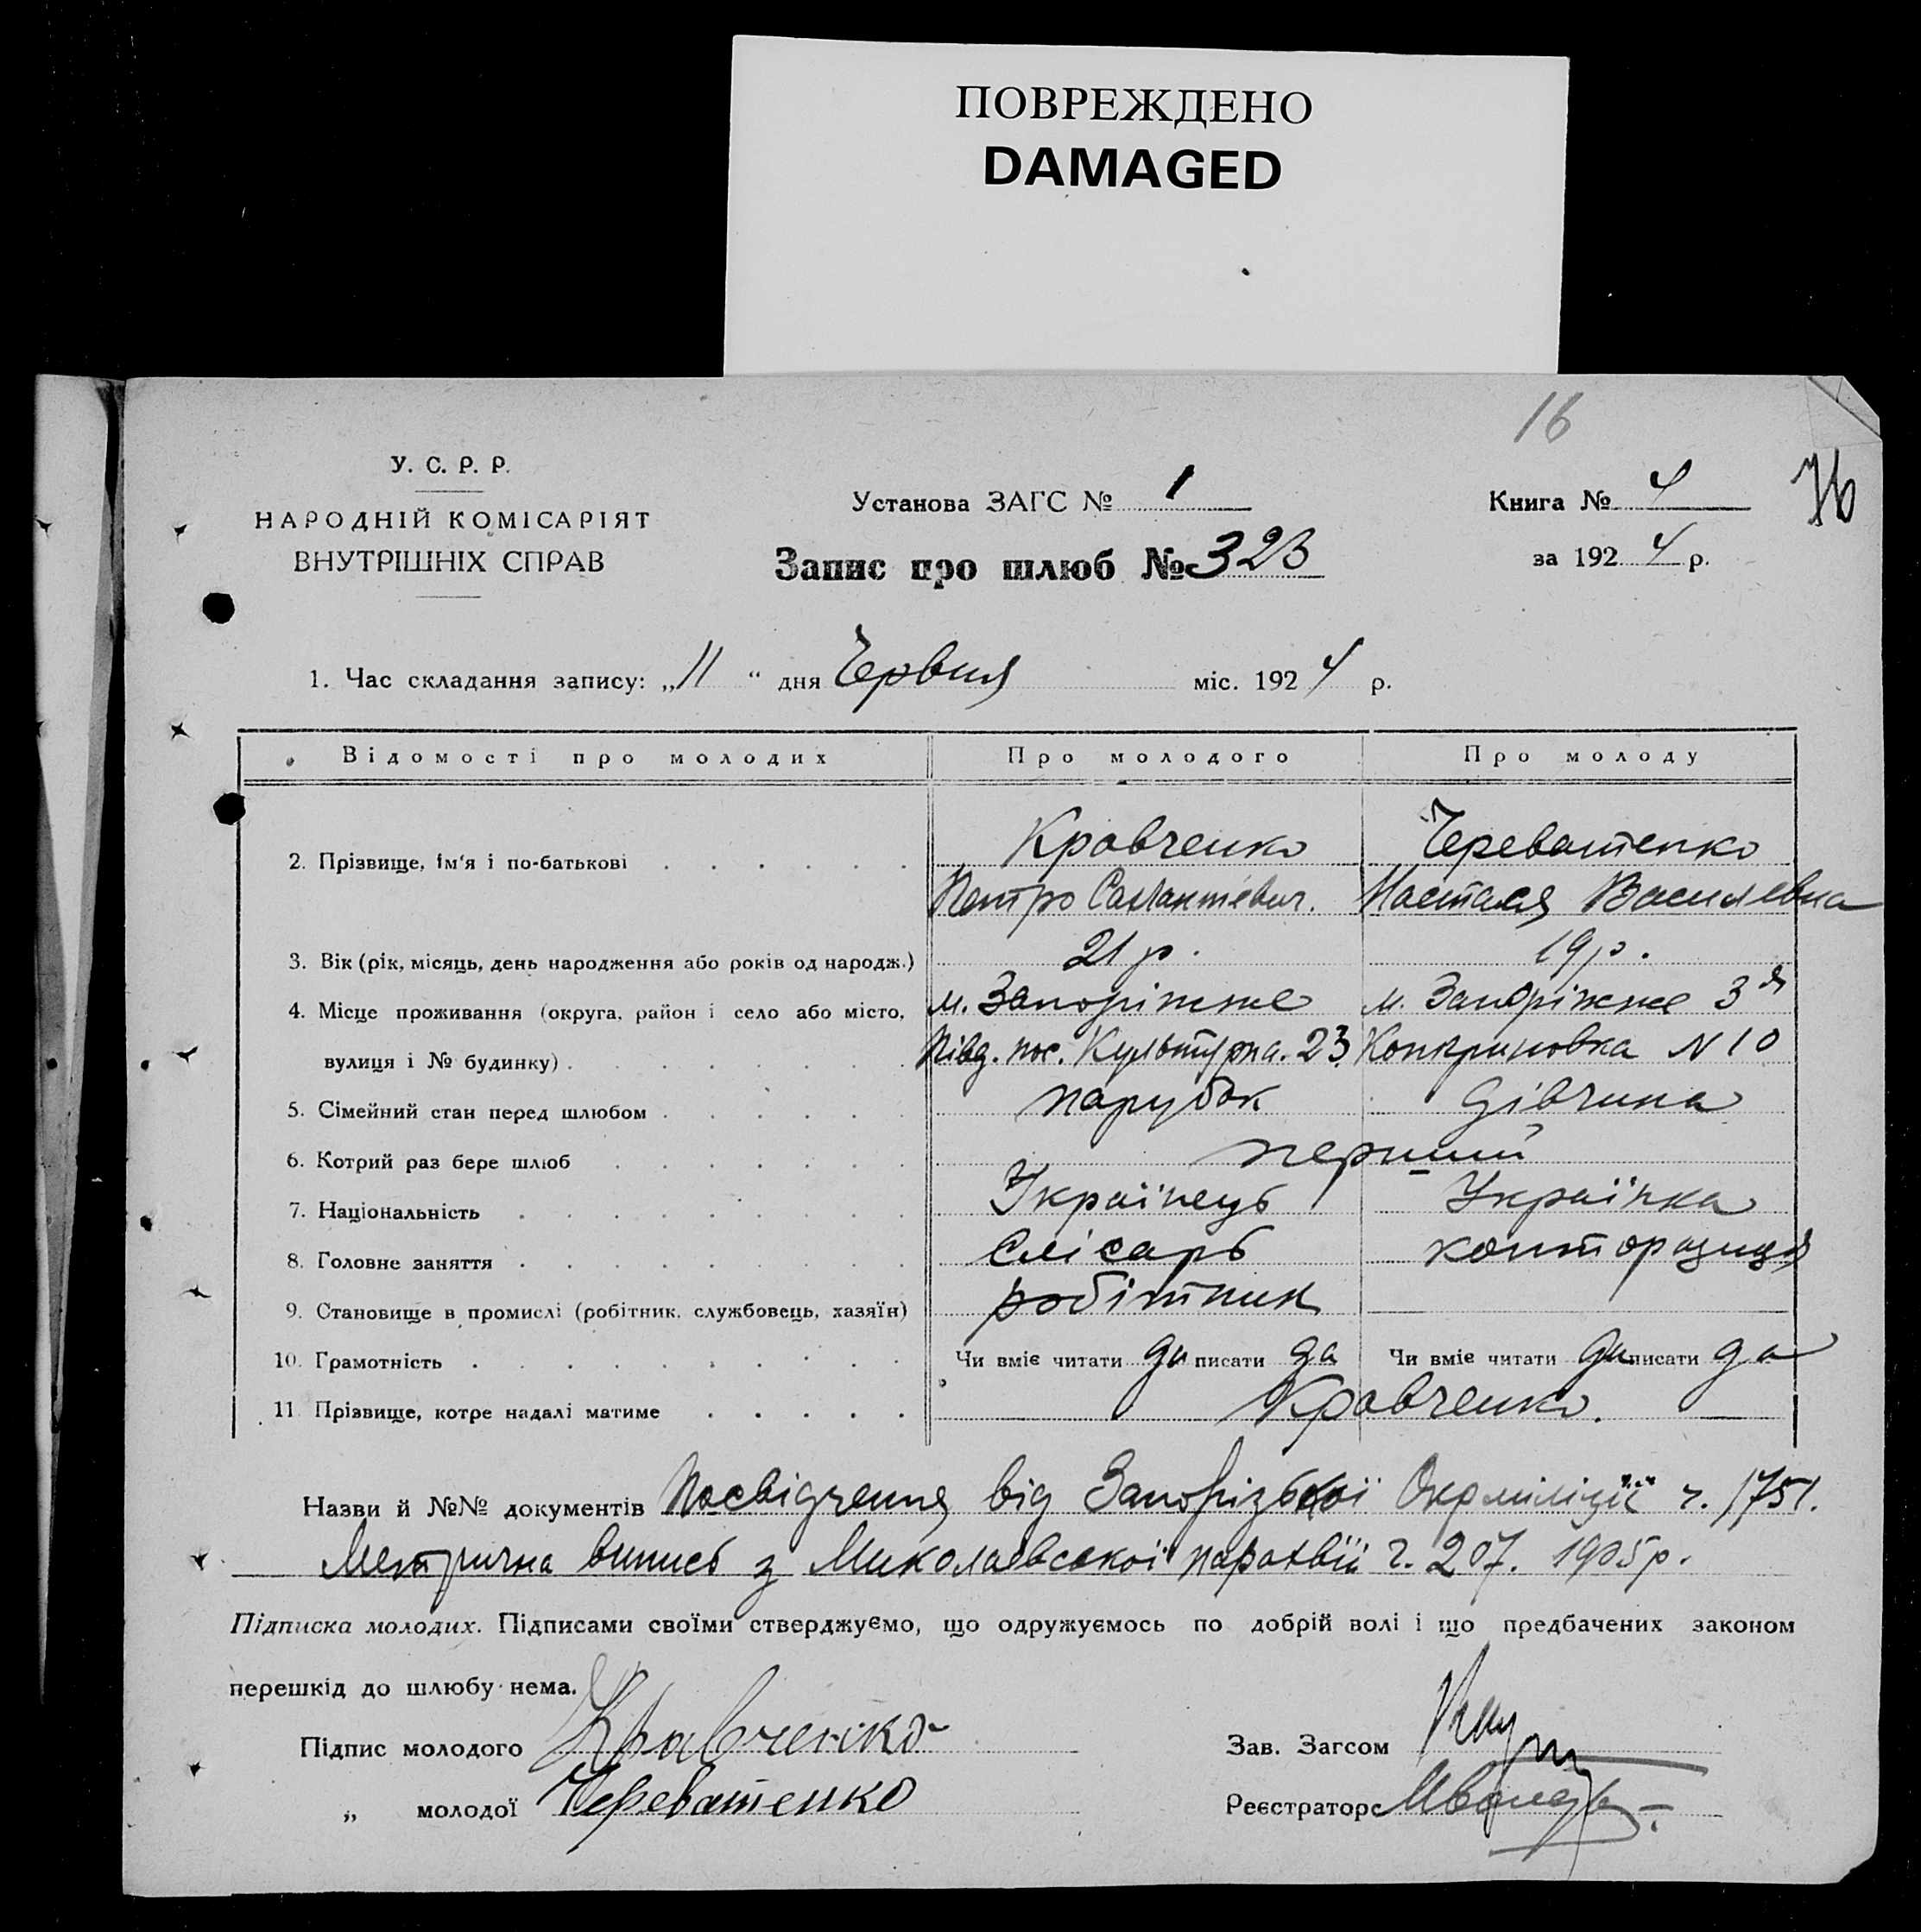 ПОВРЕЖДЕНО
DAMAGED
16
76
У. С. Р. Р.
НАРОДНІЙ КОМІСАРІЯТ
ВНУТРІШНІХ СПРАВ
Установа ЗАГС № 1
Книга № 4
Запис про шлюб № 323
за 1924 р.
1. Час складання запису: „11“ дня Червня міс. 1924 р.
Відомості про молодих Про молодого Про молоду
2. Прізвище, ім'я і по-батькові Кравченко Череватенко
Петро Настася Василевна
3. Вік (рік, місяць, день народження або років од народж.) 21 р. 19 р.
4. Місце проживання (округа, район і село або місто, м. Запоріжже м. Запоріжже 3я
вулиця і № будинку) Півд. пос. Культурна. 23. Конкриновка N 10
5. Сімейний стан перед шлюбом парубок дівчина
6. Котрий раз бере шлюб перший
7. Національність Українець Українка
8. Головне заняття Слісарь конторщиця
9. Становище в промислі (робітник, службовець, хазяїн) робітник
10. Грамотність Чи вміє читати да писати да Чи вміє читати да писати да
11. Прізвище, котре надалі матиме Кравченко.
Назви й №№ документів Посвідчення від Запорізької Окрміліції ч. 1751.
Метрична випись з Миколаєвської парохвії ч. 207. 1905 р.
Підписка молодих. Підписами своїми стверджуємо, що одружуємось по добрій волі і що предбачених законом
перешкід до шлюбу нема.
Підпис молодого Кравченко
Зав. Загсом
„ молодої Череватенко
Реєстраторс